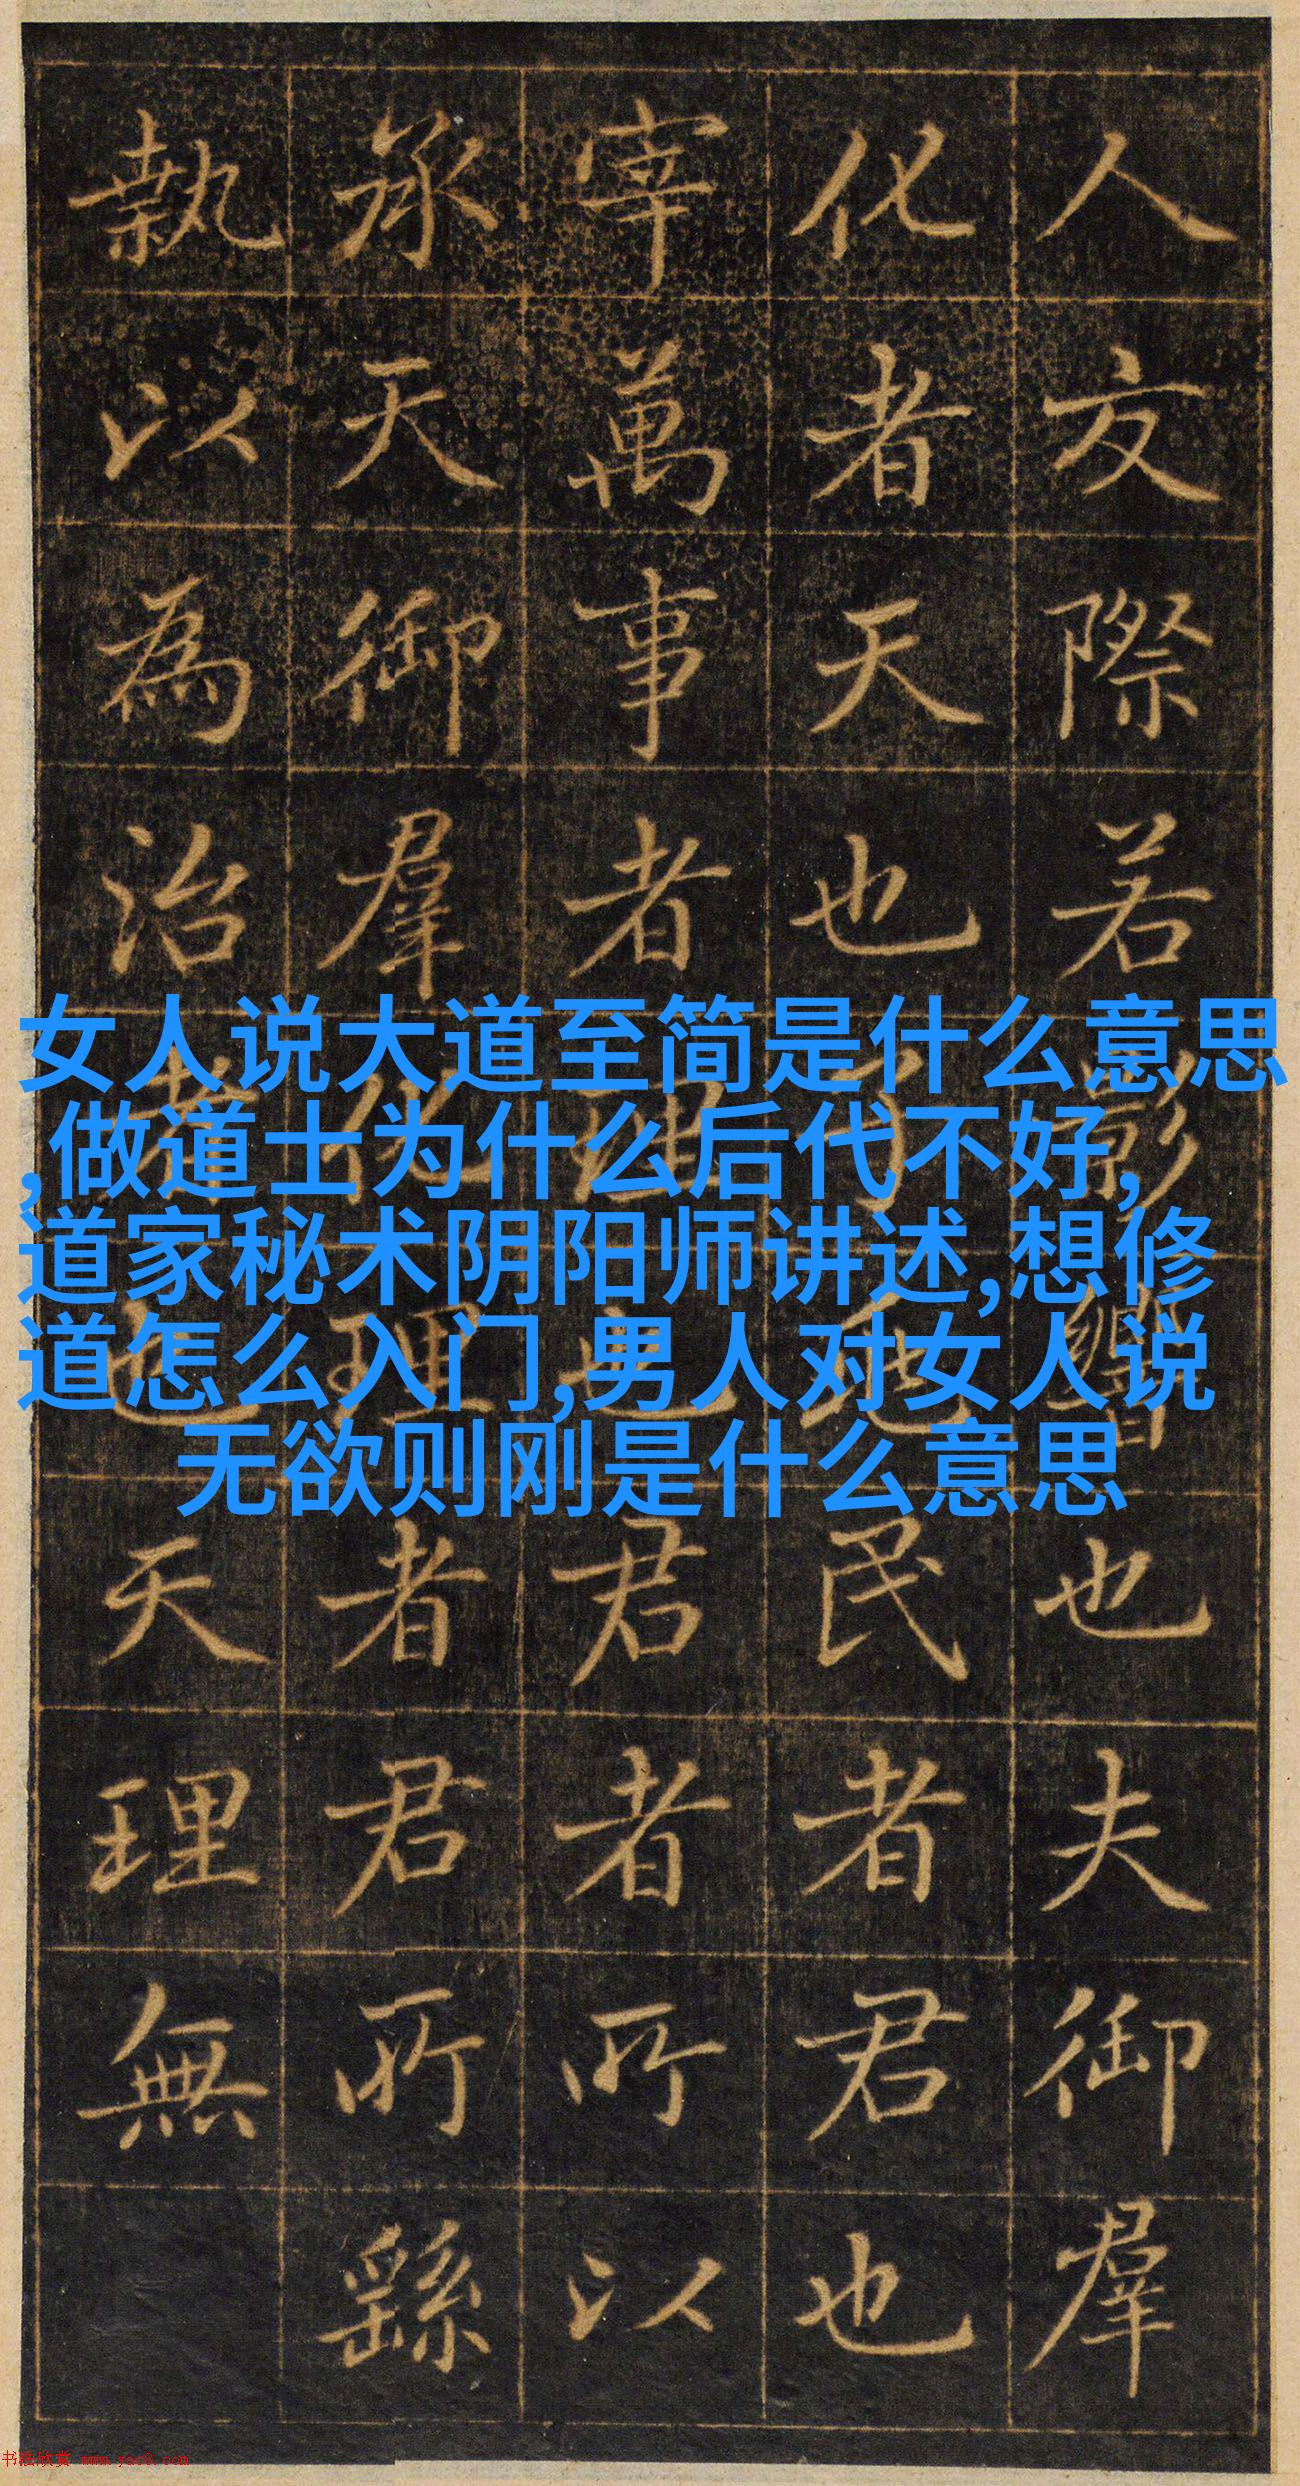 人交際若影響也夫御羣
化者天也民者君也
宰萬事者也君者所以
承天御羣理者君所繇
執以為治者也天理無
女人说大道至简是什么意思
,做道士为什么后代不好,
道家秘术阴阳师讲述,想修
道怎么入门,男人对女人说
无欲则刚是什么意思
书法欣赏 www.yac8.com